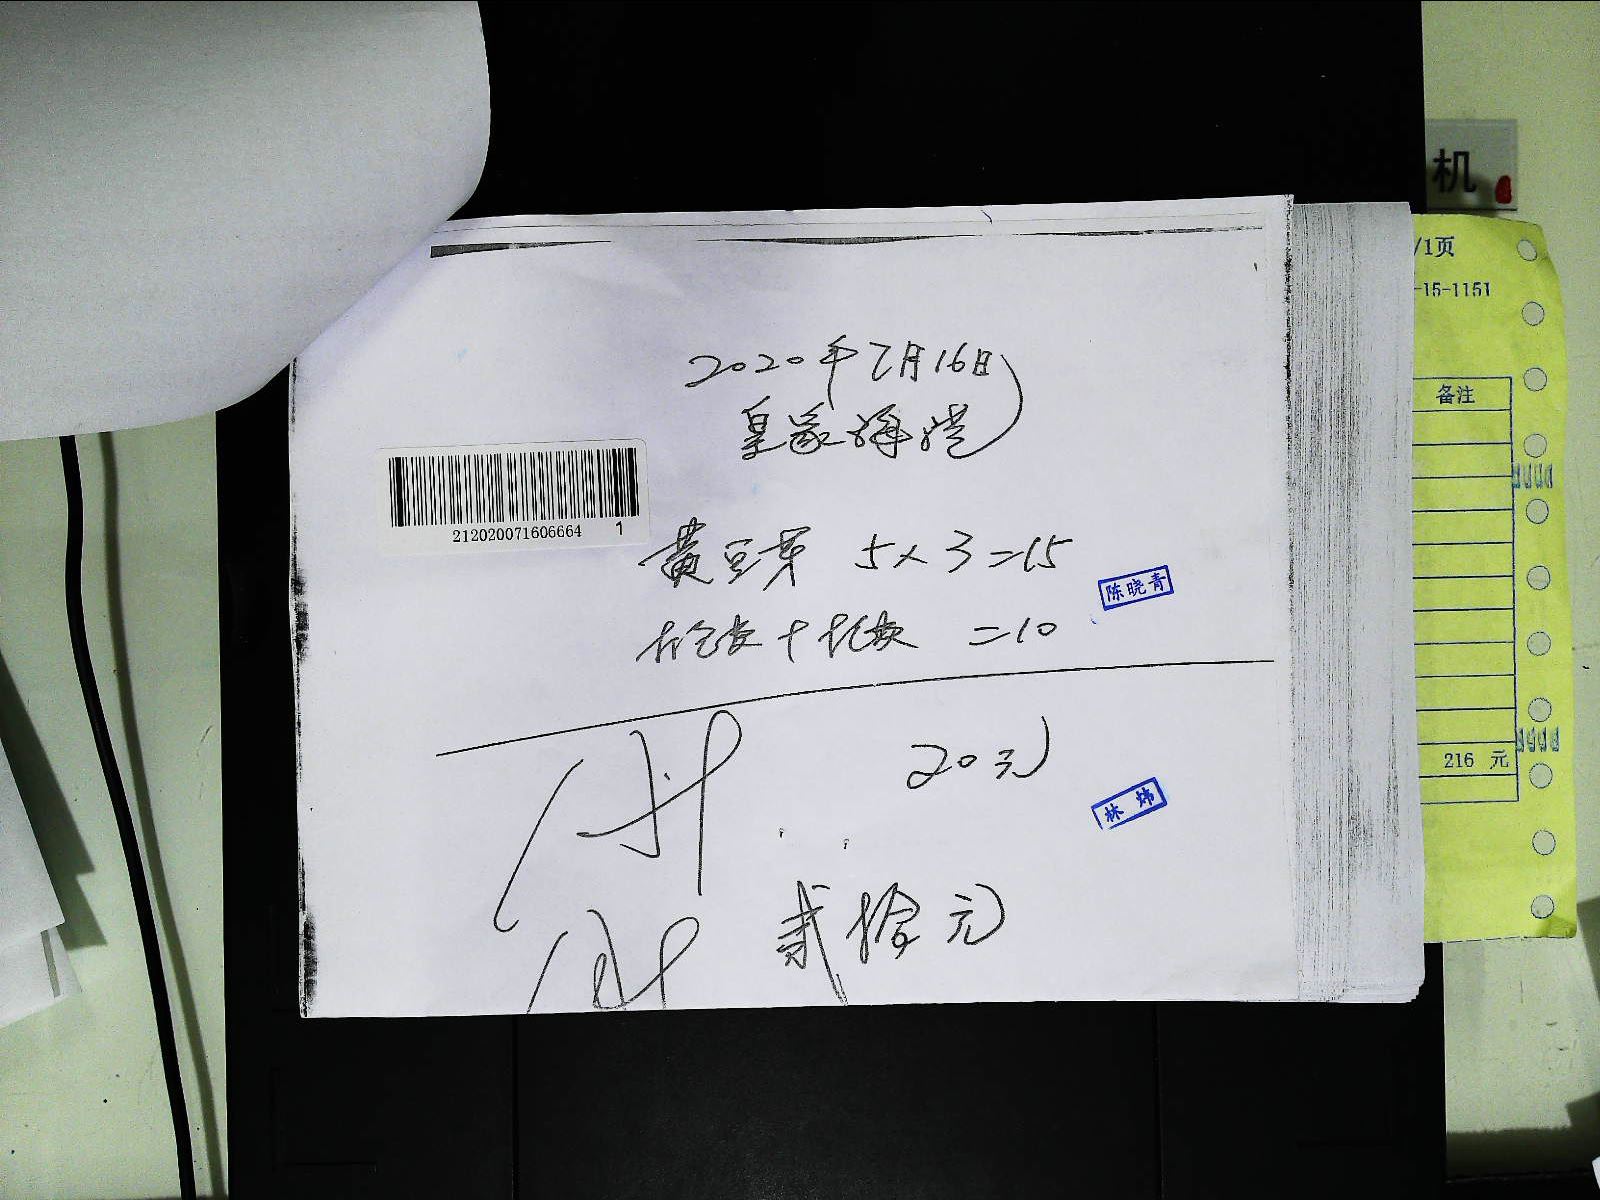 机
/1页
-15-1151
备注
216 元
2020年7月16日
皇家
212020071606664 1
黄豆芽 5×3=15
陈晓青
=10
20元
林炜
贰拾元